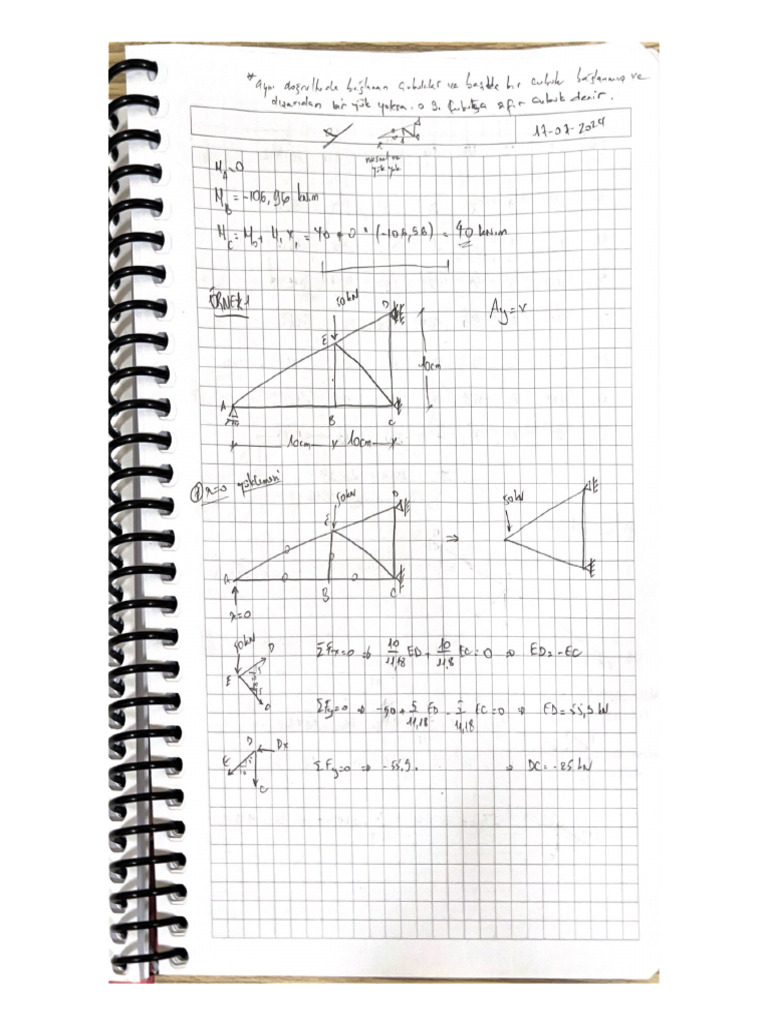 * Aynı doğrultuda bağlanan çubuklar ve başka bir çubuk bağlanmamış ve
dışarıdan bir yük yoksa o çubuğa sıfır çubuk denir.
17-07-2024
yük yok
M_A=0
M_B=-106,96 kN.m
M_C=M_0+M_1X_1=40+0*(-106,58)=40 kN.m
ÖRNEK1
50kN
D
Ay=r
E
10cm
A
B
C
10cm
10cm
① r=0 yüklemesi
50kN
D
50kN
E
⇒
A
B
C
r=0
50kN
D
ΣFx=0 ⇒ 10/11,18 ED + 10/11,8 EC=0 ⇒ ED=-EC
E
5
10
ΣFy=0 ⇒ -50+5/11,18 ED - 5/11,18 EC=0 ⇒ ED=55,9 kN
D
Dx
E
C
ΣFy=0 ⇒ -55,9.
⇒ DC=-25 kN